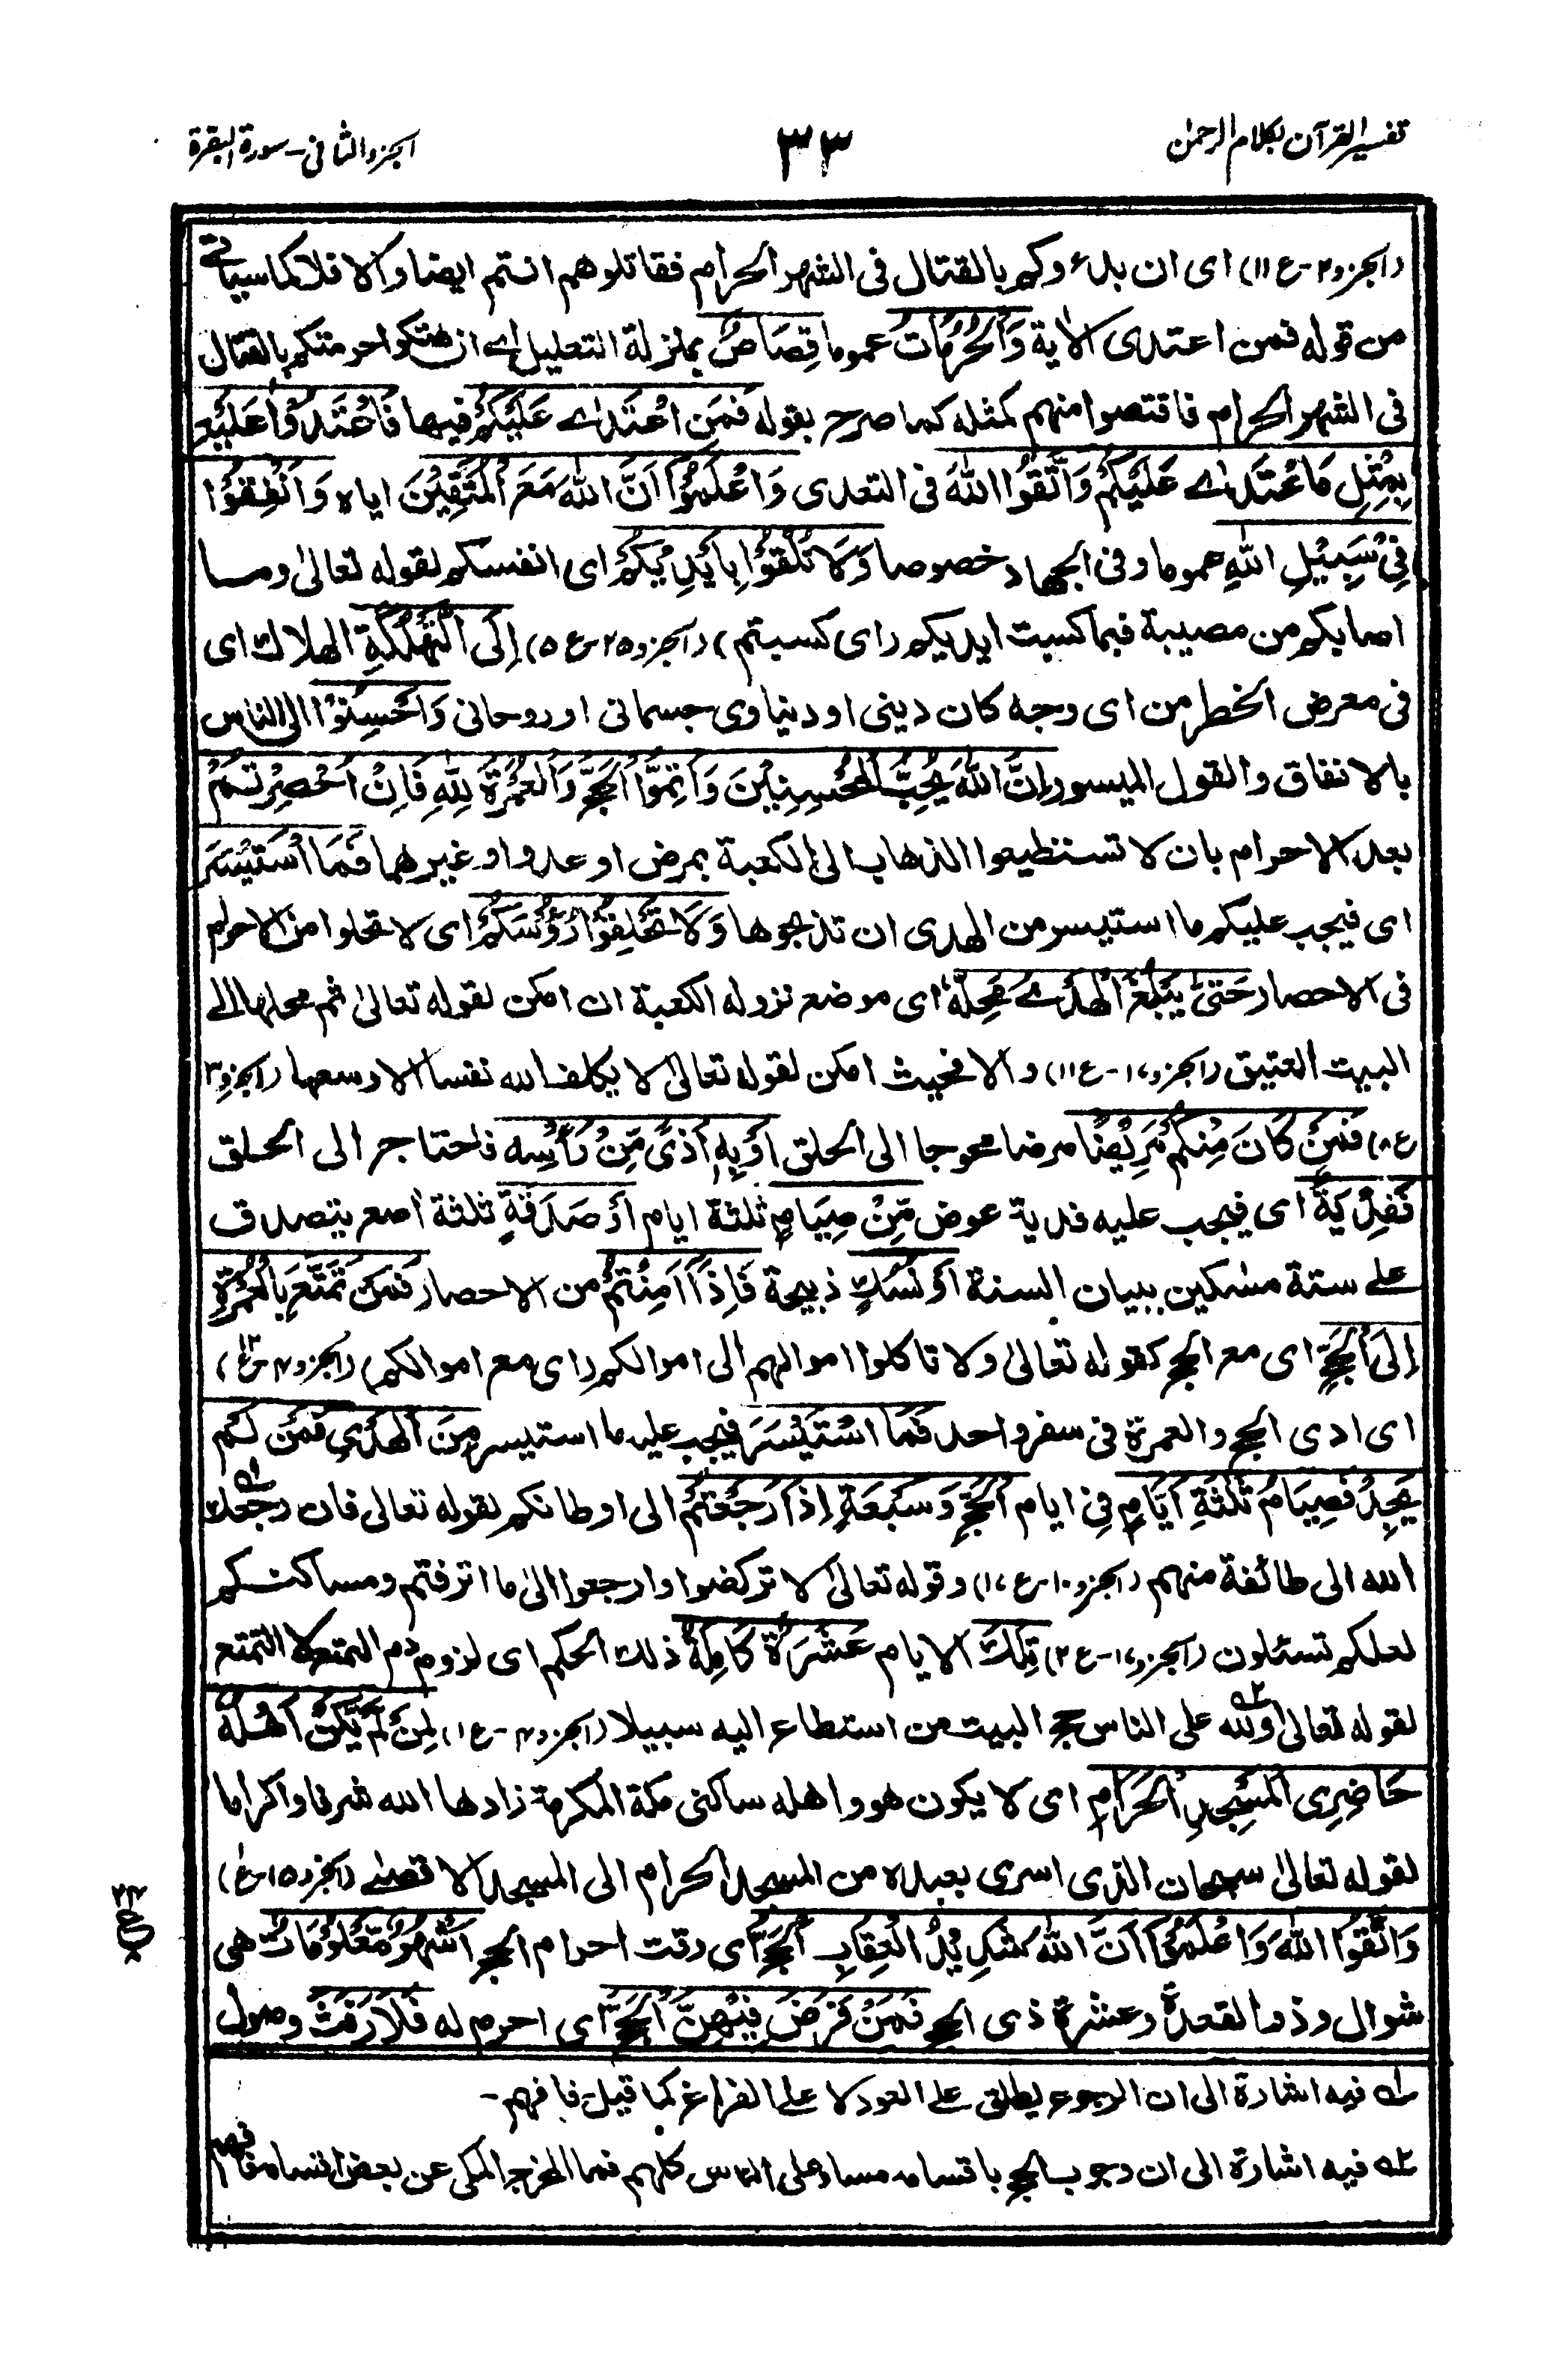 تفسير القرآن بكلام الرحمن
٣٣
الجزء الثانى - سورة البقرة
(الجزو٢-ع١١) اى ان بدءوكم بالقتال فى الشهر الحرام فقاتلوهم انتم ايضا والا فلا كما سياتے
من قوله فمن اعتدى الاية وَالْحُرُمَاتُ عموما قِصَاصٌ بمنزلة التعليل اے ان هتكوا حرمتكم بالقتال
فى الشهر الحرام فاقتصوا منهم كمثله كما صرح بقوله فَمَنِ اعْتَدٰے عَلَيْكُمْ فيها فَاعْتَدُوْا عَلَيْهِ
بِمِثْلِ مَا عْتَدٰے عَلَيْكُمْ وَاتَّقُوا اللّٰهَ فى التعدى وَاعْلَمُوْٓا اَنَّ اللّٰهَ مَعَ الْمُتَّقِيْنَ اياه وَاَنْفِقُوْا
فِىْ سَبِيْلِ اللّٰهِ عموما وفى الجهاد خصوصا وَلَا تُلْقُوْا بِاَيْدِيْكُمْ اى انفسكم لقوله تعالىٰ وما
اصابكم من مصيبة فبما كسبت ايديكم (اى كسبتم) (الجزو٢٥-ع٥) اِلَى التَّهْلُكَةِ الهلاك اى
فى معرض الخطر من اى وجه كان دينى او دنياوى جسمانى او روحانى وَاَحْسِنُوْا الى الناس
بالانفاق والقول الميسور اِنَّ اللّٰهَ يُحِبُّ الْمُحْسِنِيْنَ وَاَتِمُّوا الْحَجَّ وَالْعُمْرَةَ لِلّٰهِ فَاِنْ اُحْصِرْتُمْ
بعد الاحرام بان لا تستطيعوا الذهاب الى الكعبة بمرض او عدو او غيرهما فَمَا اسْتَيْسَرَ
اى فيجب عليكم ما استيسر من الهدى ان تذبحوها وَلَا تَحْلِقُوْا رُؤُسَكُمْ اى لا تحلوا من الاحرام
فى الاحصار حَتّٰى يَبْلُغَ الْهَدْىُ مَحِلَّهٗ اى موضع نزوله الكعبة ان امكن لقوله تعالىٰ ثم محلها الے
البيت العتيق (الجزو١٧-ع١١) والا فحيث امكن لقوله تعالىٰ لا يكلف الله نفسا الا وسعها (الجزو٣
ع٨) فَمَنْ كَانَ مِنْكُمْ مَّرِيْضًا مرضا محوجا الى الحلق اَوْ بِهٖٓ اَذًى مِّنْ رَّاْسِهٖ فاحتاج الى الحلق
فَفِدْيَةٌ اى فيجب عليه فدية عوض مِّنْ صِيَامٍ ثلثة ايام اَوْ صَدَقَةٍ ثلثة اصع يتصدق
علے ستة مسٰكين ببيان السنة اَوْ نُسُكٍ ذبيحة فَاِذَآ اَمِنْتُمْ من الاحصار فَمَنْ تَمَتَّعَ بِالْعُمْرَةِ
اِلَى الْحَجِّ اى مع الحج كقوله تعالىٰ ولا تاكلوا اموالهم الى اموالكم (اى مع اموالكم) (الجزو٤-ع١٢)
اى ادى الحج والعمرة فى سفر واحد فَمَا اسْتَيْسَرَ فيجب عليه ما استيسر مِنَ الْهَدْىِ فَمَنْ لَّمْ
يَجِدْ فَصِيَامُ ثَلٰثَةِ اَيَّامٍ فِى ايام الْحَجِّ وَسَبْعَةٍ اِذَا رَجَعْتُمْ الى اوطانكم لقوله تعالى فان رجعك ١ه
الله الى طائفة منهم (الجزو١٠-ع١٧) وقوله تعالىٰ لا تركضوا وارجعوا الىٰ ما اترفتم ومساكنكم
لعلكم تسئلون (الجزو١٧-ع٢) تِلْكَ الايام عَشَرَةٌ كَامِلَةٌ ذلك الحكم اى لزوم دم التمتع لا التمتع
لقوله تعالىٰ ولله ٢ه على الناس حج البيت من استطاع اليه سبيلا (الجزو٤-ع١) لِمَنْ لَّمْ يَكُنْ اَهْلُهٗ
حَاضِرِى الْمَسْجِدِ الْحَرَامِ اى لا يكون هو واهله ساكنى مكة المكرمة زادها الله شرفا واكراما
لقوله تعالىٰ سبحان الذى اسرى بعبده من المسجد الحرام الى المسجد الاقصٰے (الجزو١٥-ع١)
وَاتَّقُوا اللّٰهَ وَاعْلَمُوْٓا اَنَّ اللّٰهَ شَدِيْدُ الْعِقَابِ اَلْحَجُّ اى وقت احرام الحج اَشْهُرٌ مَّعْلُوْمَاتٌ هى
شوال وذو القعدة وعشرة ذى الحج فَمَنْ فَرَضَ فِيْهِنَّ الْحَجَّ اى احرم له فَلَا رَفَثَ وصول
١ه فيه اشارة الى ان الرجوع يطلق علے العود لا علے الفراغ كما قيل فافهم-
٢ه فيه اشارة الى ان وجوب الحج باقسامه مساو على الناس كلهم فما المخرج المكى عن بعض اقسامه فافهم
ع